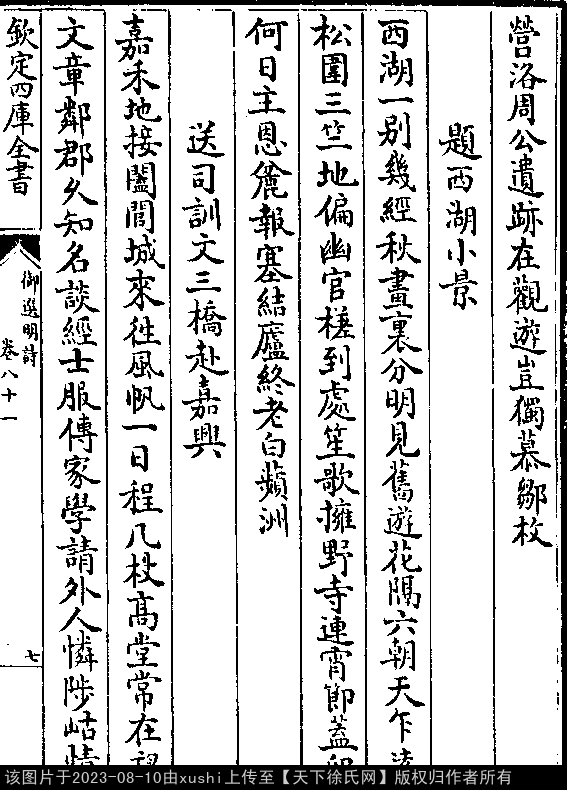 營洛周公遺跡在觀遊豈獨慕鄒枚
題西湖小景
西湖一別幾經秋畫裏分明見舊遊花隔六朝天乍
松圍三竺地偏幽官槎到處笙歌擁野寺連宵節蓋
何日主恩䝉報塞結廬終老白蘋洲
送司訓文三橋赴嘉興
嘉禾地接闔閭城來往風帆一日程几杖高堂常在
文章鄰郡久知名談經士服傳家學請外人憐陟岵情
欽定四庫全書
御選明詩
卷八十一
七
该图片于2023-08-10由xushi上传至【天下徐氏网】版权归作者所有